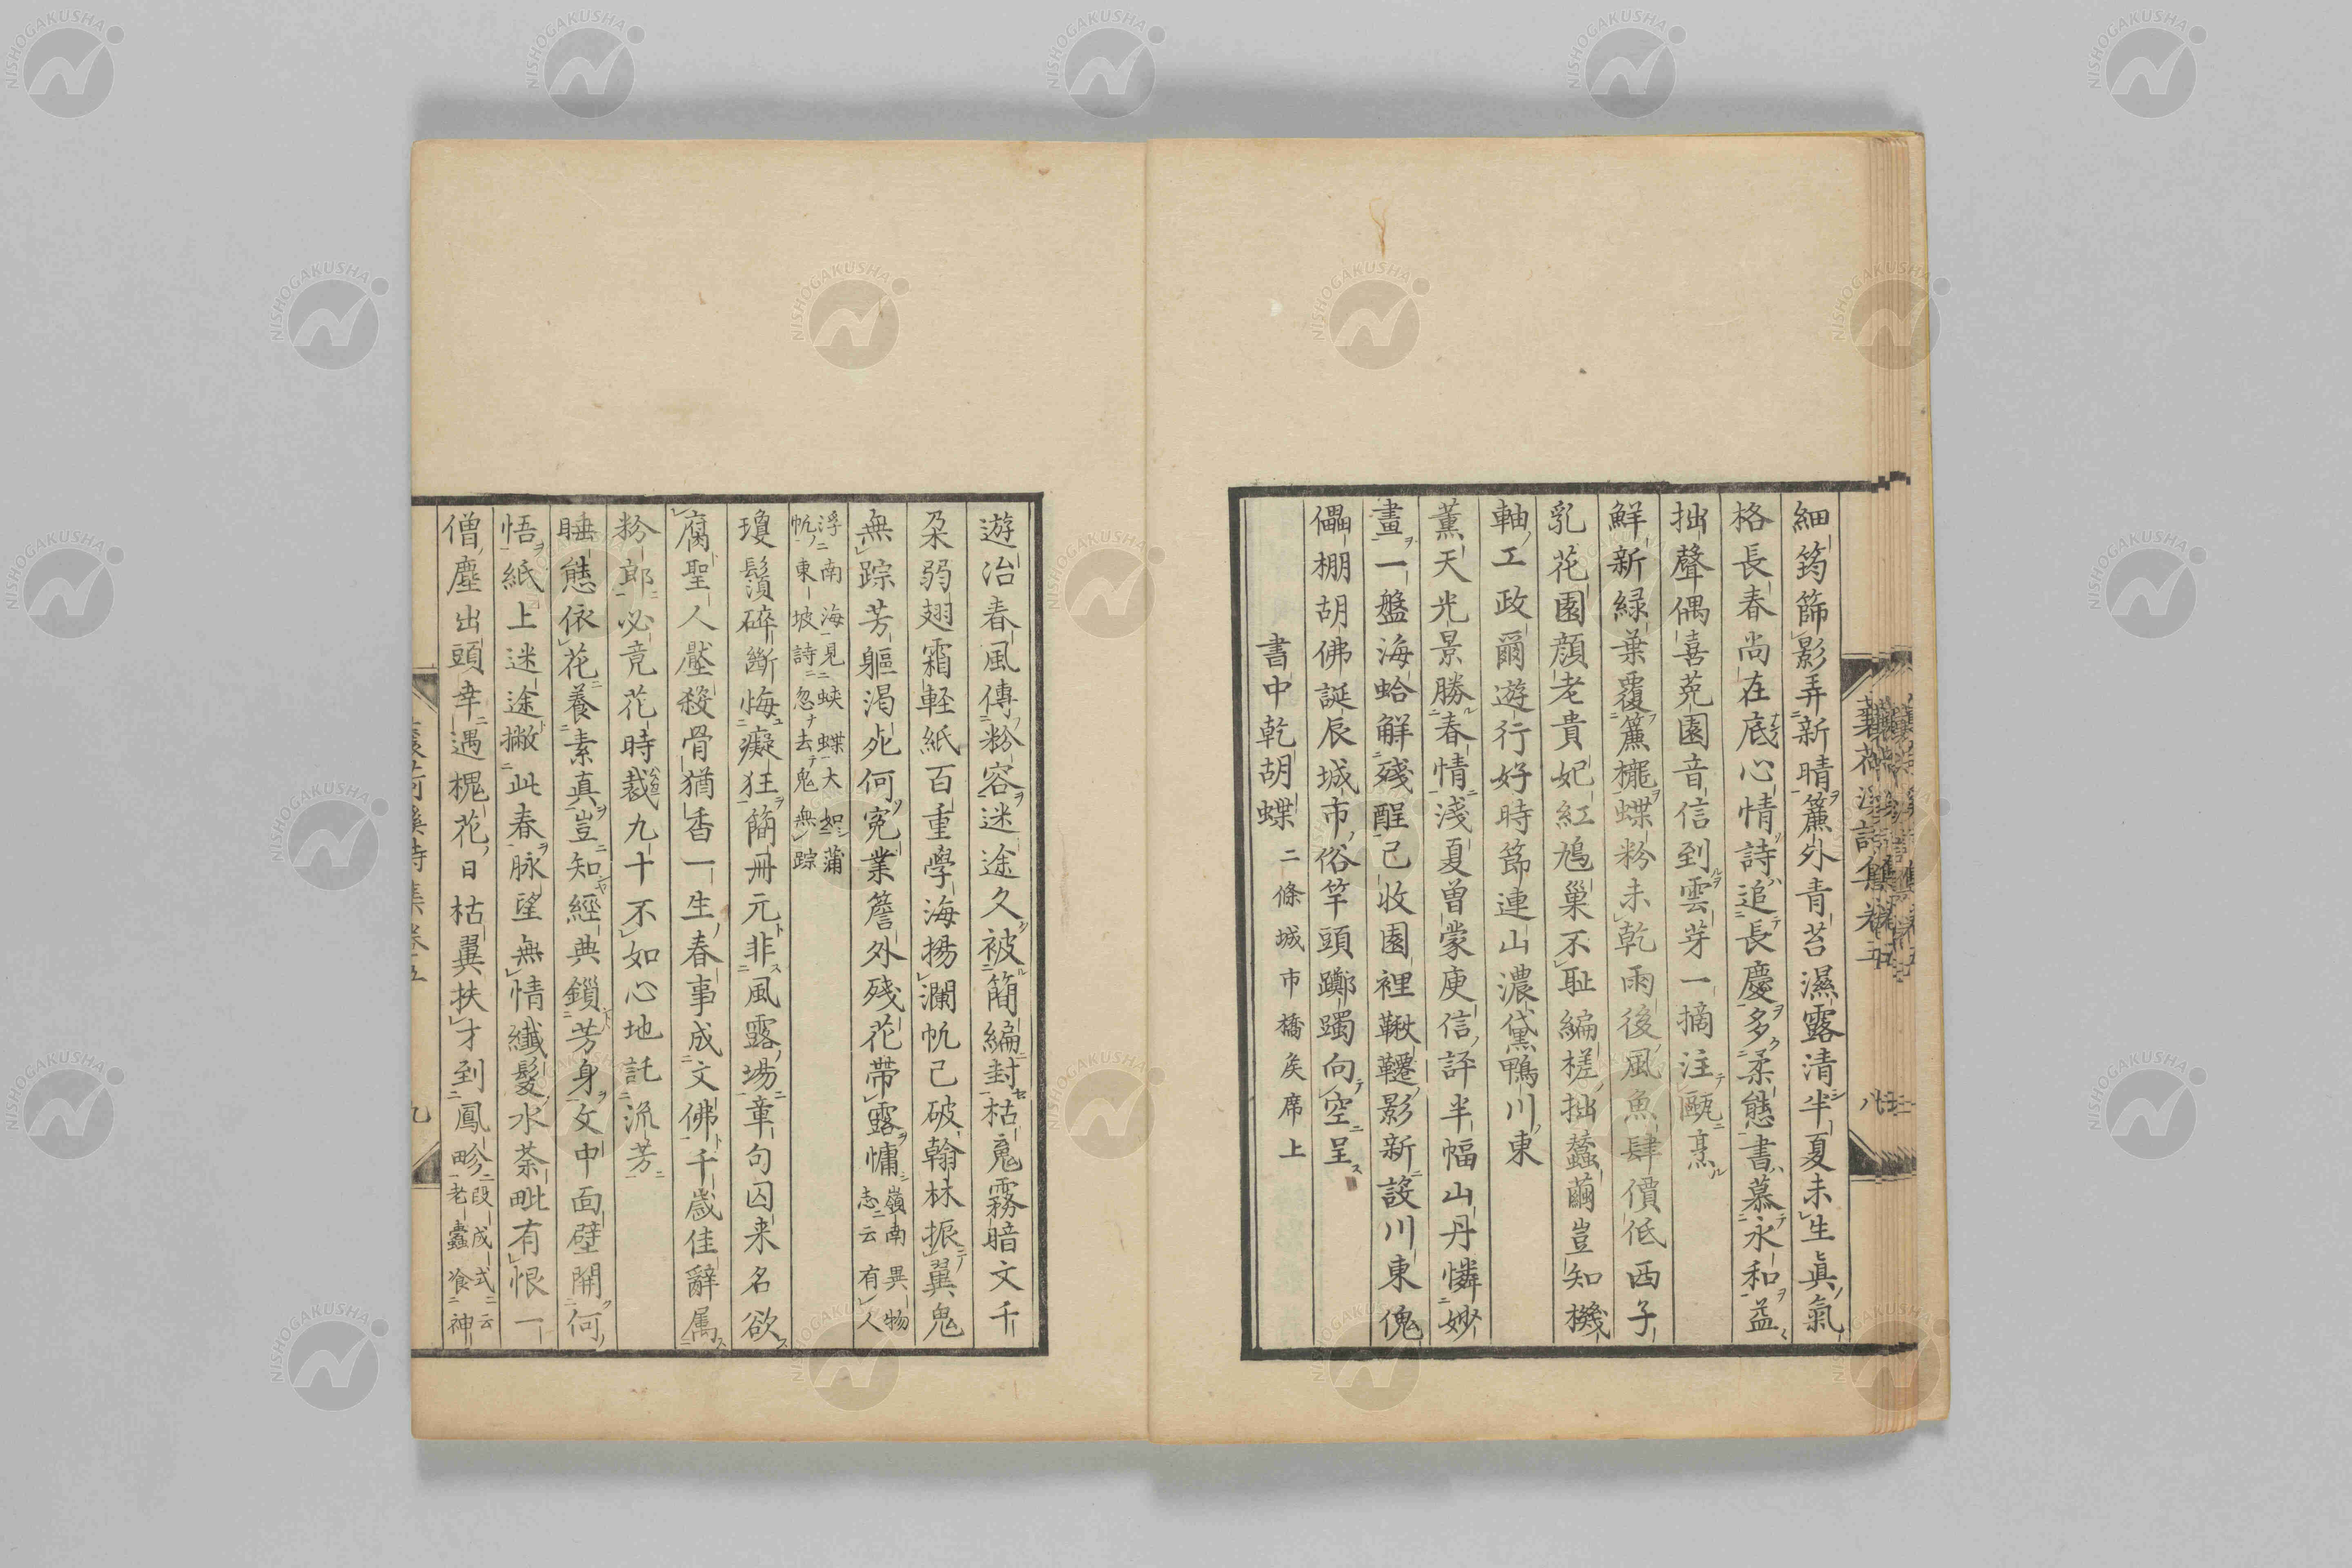 細筠篩影弄新晴簾外青苔濕露清半夏未生眞氣
格長春尚在底心情詩追長慶多柔態書慕永和益
拙聲偶喜莵園音信到雲芽一摘注甌烹
鮮新緑葉覆簾櫳蝶粉未乾雨後風魚肆價低西子
乳花園顔老貴妃紅鳩巢不耻編槎拙蠶繭豈知機
軸工政爾遊行好時節連山濃黛鴨川東
薫天光景勝春情淺夏曽蒙庚信評半幅山丹憐妙
畫一盤海蛤解殘酲已收園裡鞦韆影新設川東傀
儡棚胡佛誕辰城市俗竿頭躑躅向空呈
書中乾胡蝶 二條城市橋矦席上
遊冶春風傳粉容迷途久被簡編封枯䰟霧暗文千
朶弱翅霜軽紙百重學海揚瀾帆已破翰林振翼鬼
無踪芳軀渇死何寃業簷外殘花帶露慵 嶺南異物志云有人
浮南海見蛺蝶大如蒲帆東坡詩忽去鬼無踪
瓊鬚碎斷悔癡狂簡冊元非風露場章句囚来名欲
腐聖人壓殺骨猶香一生春事成文佛千歳佳辭属
粉郎必竟花時裁九十不如心地託流芳
睡態依花養素真豈知經典鎖芳身文中面壁開何
悟紙上迷途撇此春脉望無情纖髮水荼毗有恨一
僧塵出頭幸遇槐花日枯翼扶才到鳳畛 段成式云老蠹飡神